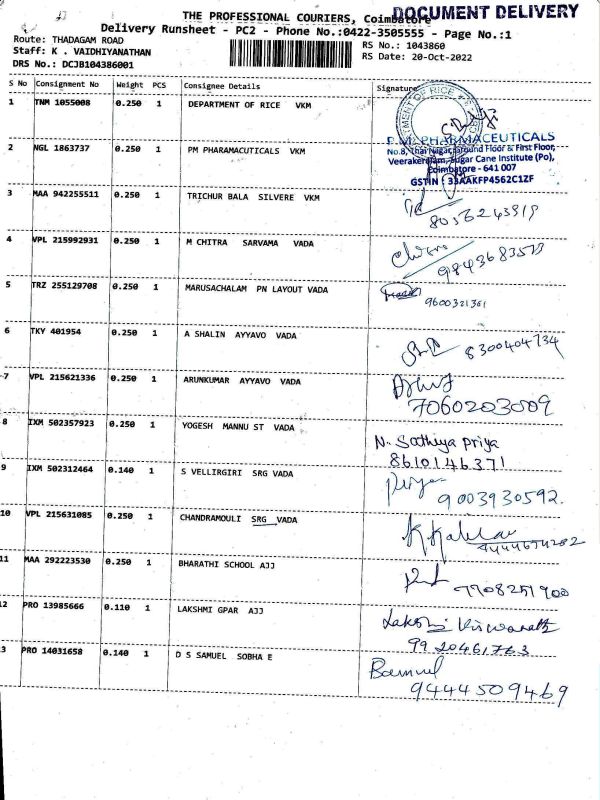 THE PROFESSIONAL COURIERS, Coimbatore
DOCUMENT DELIVERY
Delivery Runsheet - PC2 - Phone No.:0422-3505555 - Page No.:1
Route: THADAGAM ROAD
RS No.: 1043860
Staff: K . VAIDHIYANATHAN
RS Date: 20-Oct-2022
DRS No.: DCJB104386001
S No Consignment No Weight PCS Consignee Details Signature
1 TNM 1055008 0.250 1 DEPARTMENT OF RICE VKM
2 NGL 1863737 0.250 1 PM PHARAMACUTICALS VKM
P.M. PHARMACEUTICALS
No.8, Thai Nagar, Ground Floor & First Floor,
Veerakeralam, Sugar Cane Institute (Po),
Coimbatore - 641 007
GSTIN : 33AAKFP4562C1ZF
3 MAA 942255511 0.250 1 TRICHUR BALA SILVERE VKM
4 VPL 215992931 0.250 1 M CHITRA SARVAMA VADA
Chitra
9843683573
5 TRZ 255129708 0.250 1 MARUSACHALAM PN LAYOUT VADA
9600321361
6 TKY 401954 0.250 1 A SHALIN AYYAVO VADA
8300404734
7 VPL 215621336 0.250 1 ARUNKUMAR AYYAVO VADA
7060203009
8 IXM 502357923 0.250 1 YOGESH MANNU ST VADA
N. Sathiya Priya
8610146371
9 IXM 502312464 0.140 1 S VELLIRGIRI SRG VADA
Priya
9003930592.
10 VPL 215631085 0.250 1 CHANDRAMOULI SRG VADA
11 MAA 292223530 0.250 1 BHARATHI SCHOOL AJJ
7708251900
2 PRO 13985666 0.110 1 LAKSHMI GPAR AJJ
Lakshmi Viswanath
9920461763
3 PRO 14031658 0.140 1 D S SAMUEL SOBHA E
Samuel
9444509469